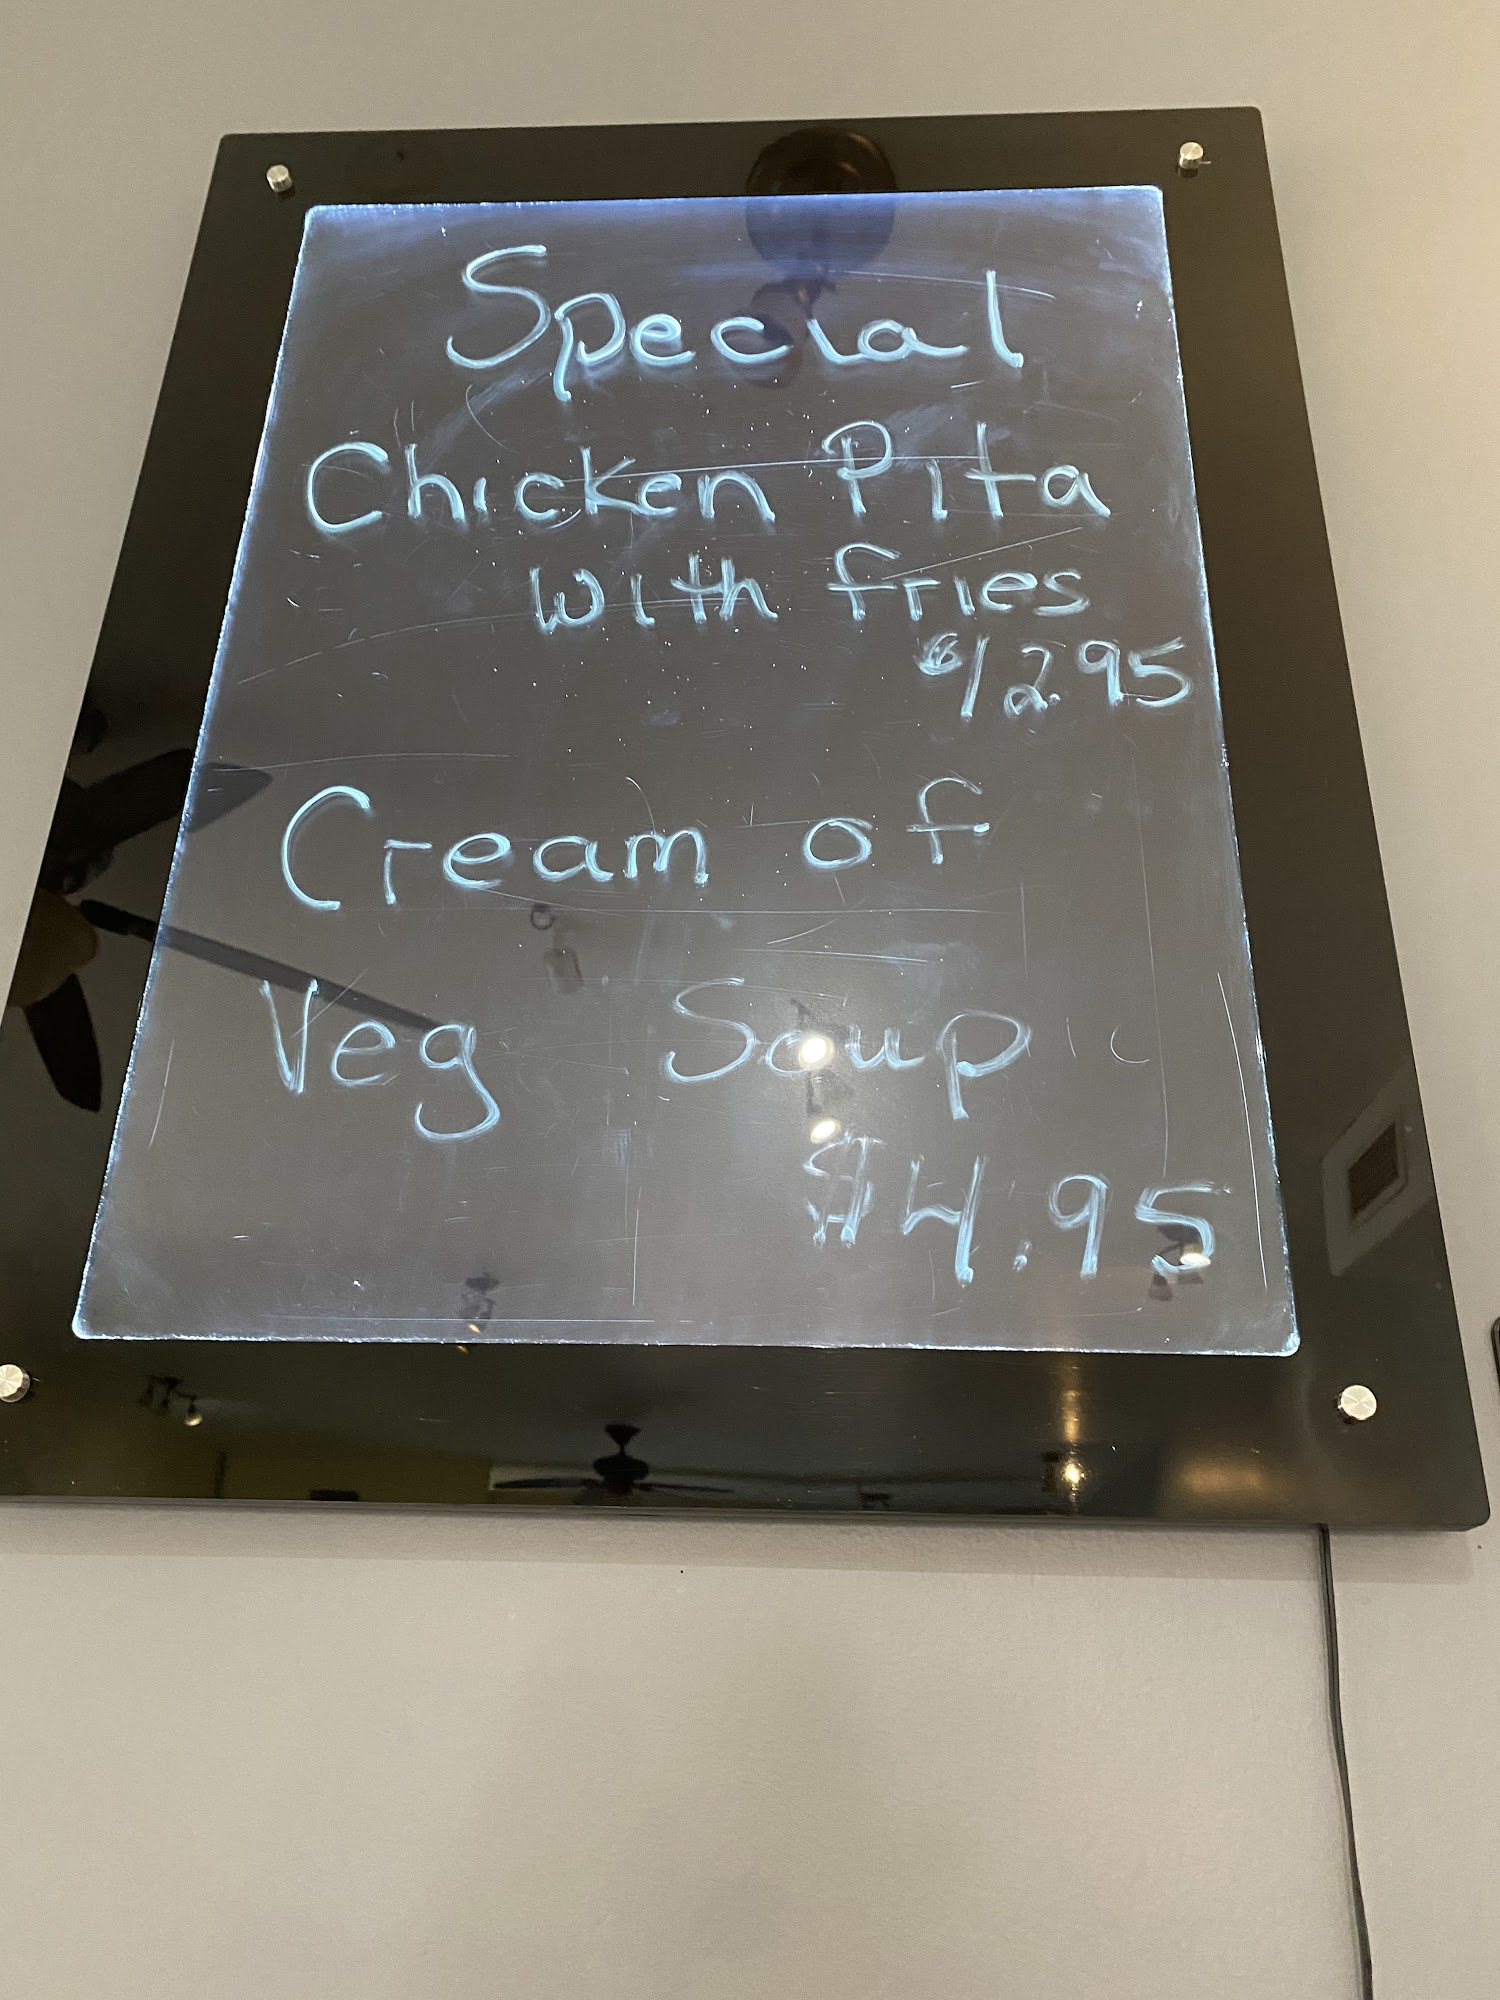 Special
Chicken Pita
with fries
$12.95
Cream of
Veg Soup
$4.95